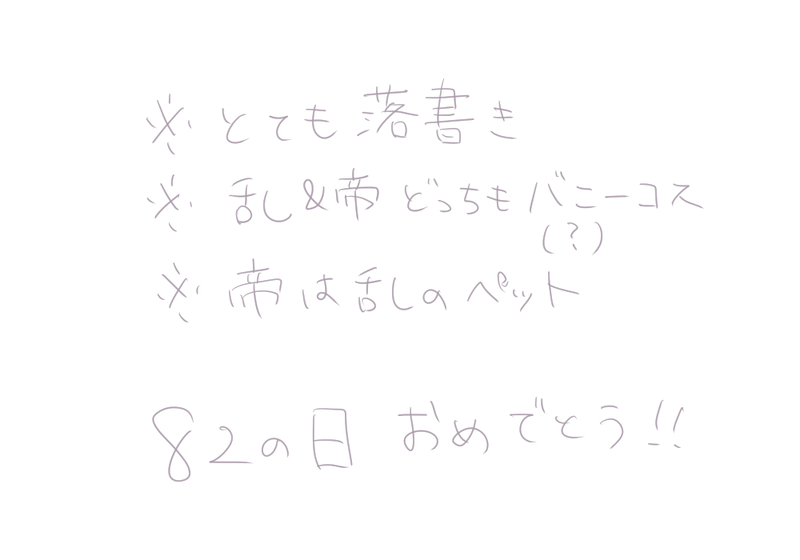 ※とても落書き
※乱&帝どっちもバニーコス
(?)
※帝は乱のペット
82の日 おめでとう!!